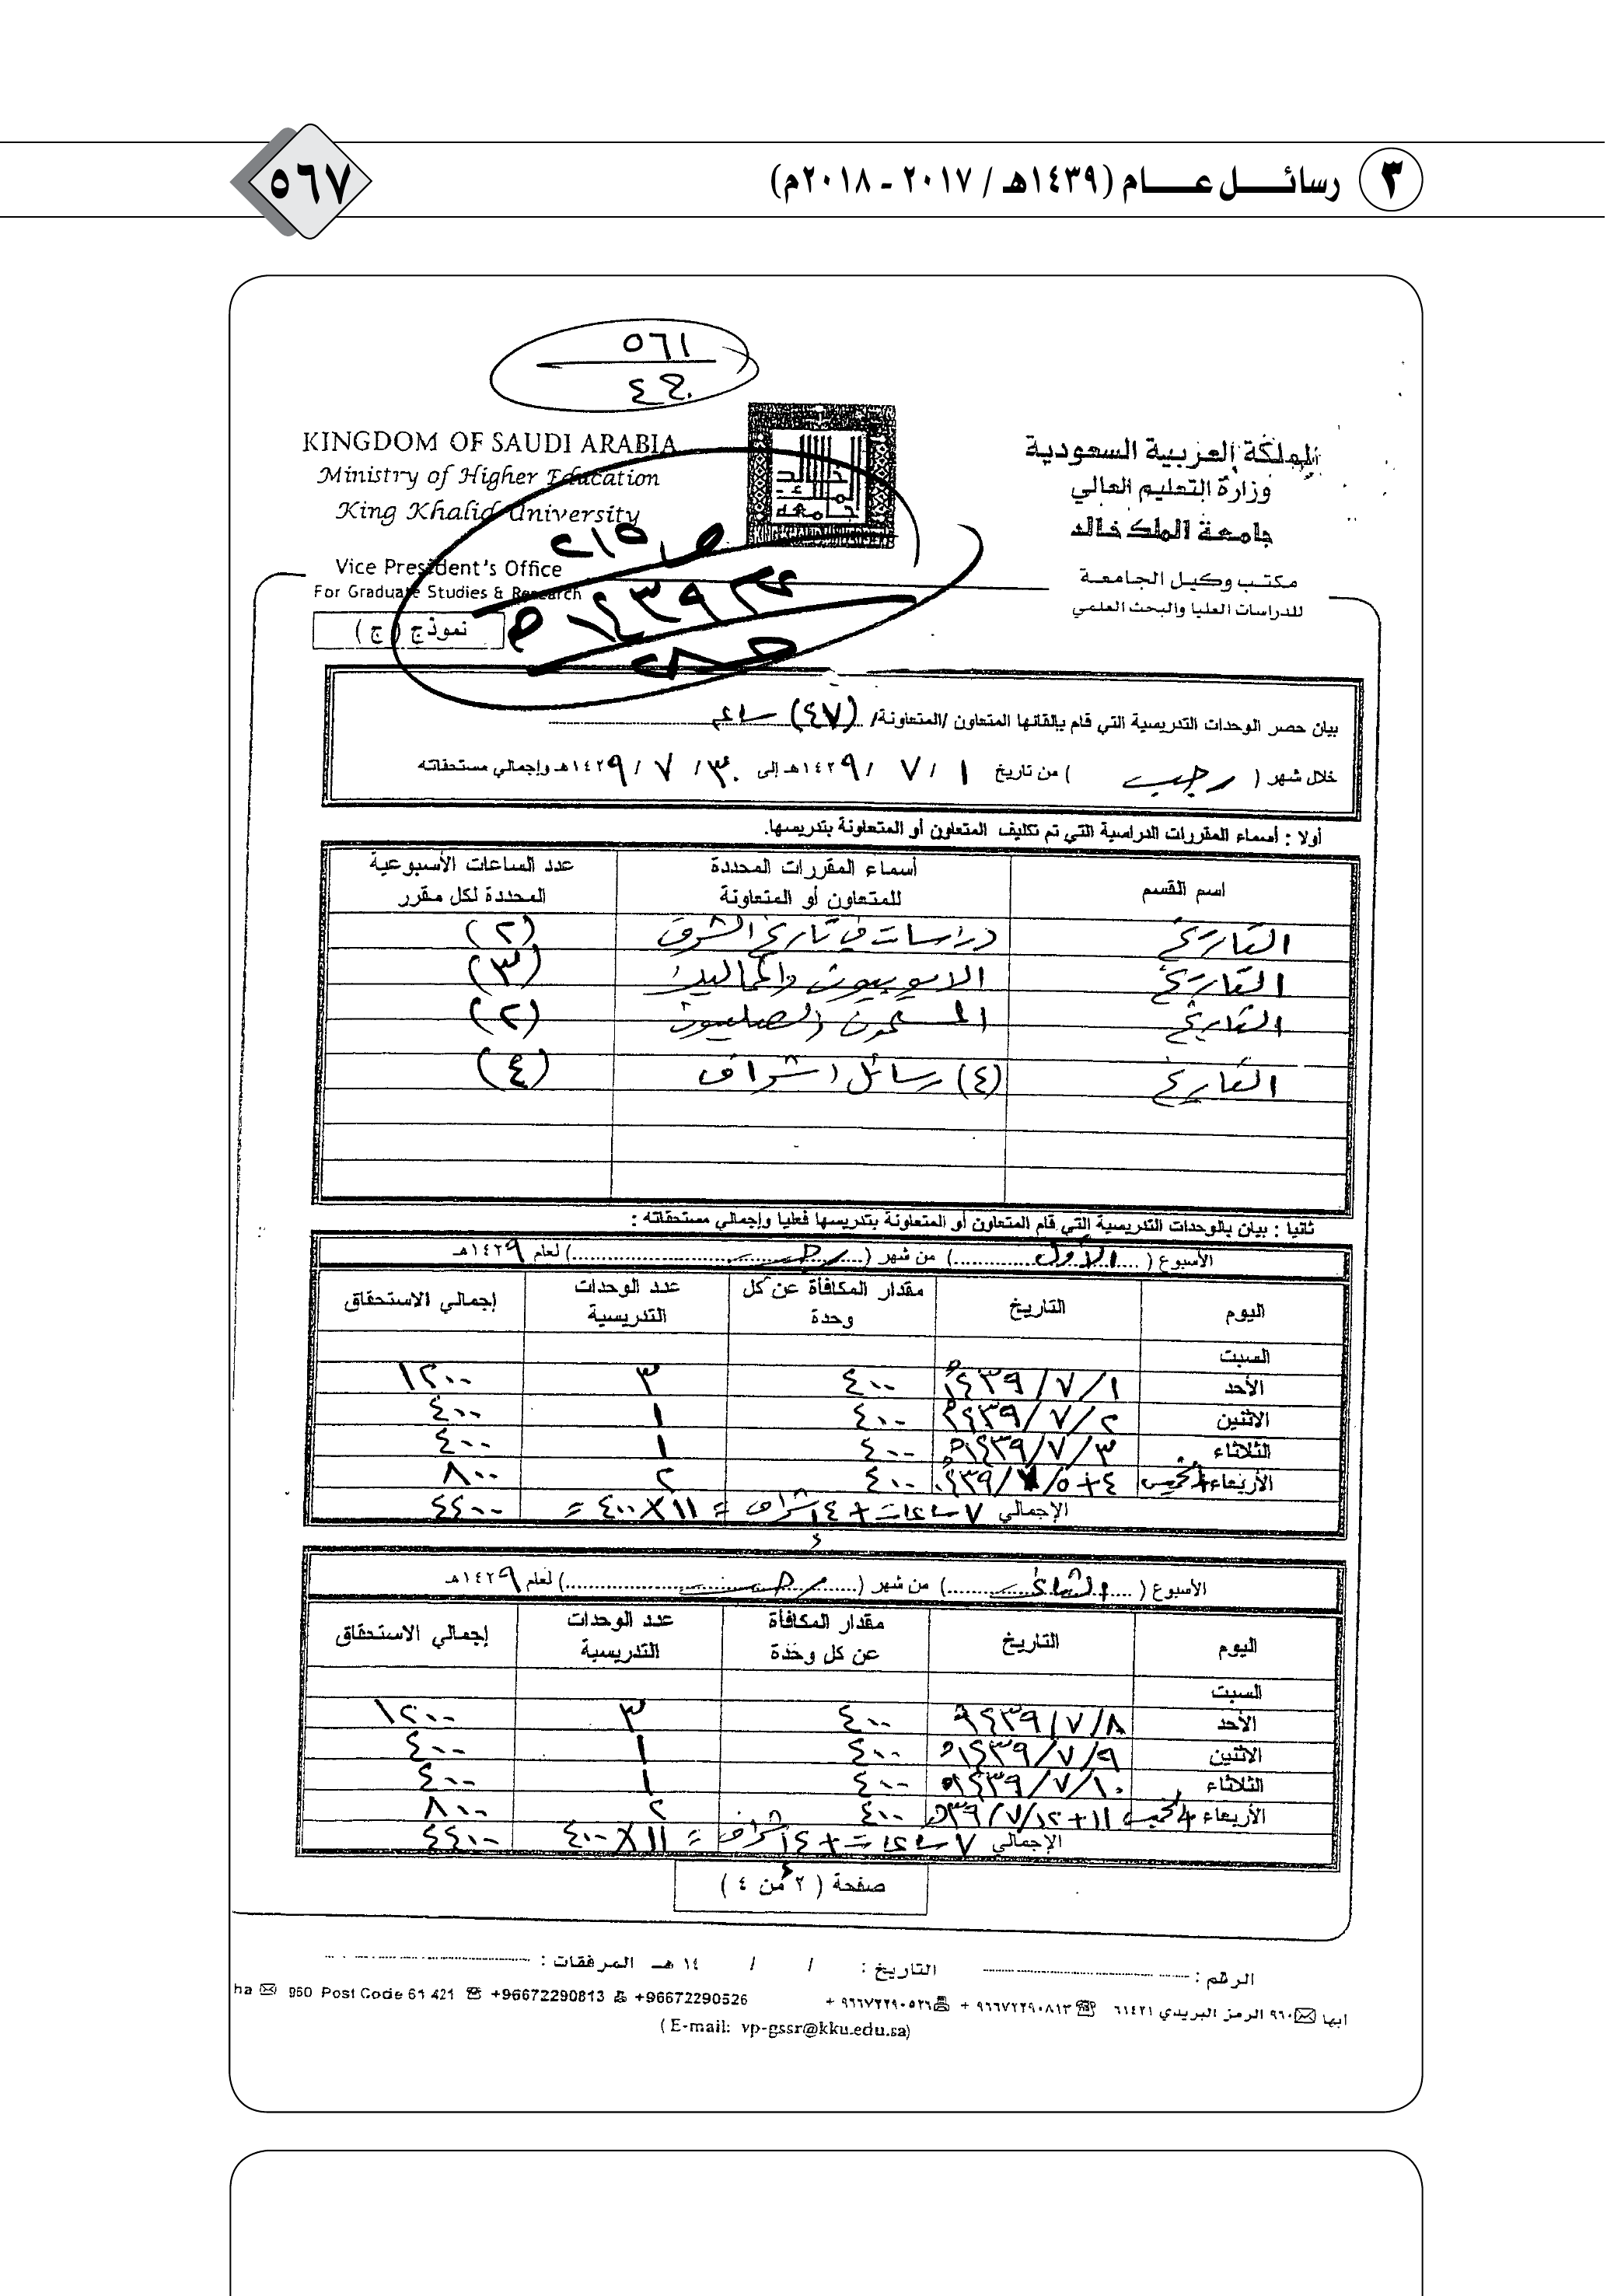 ٣ رسائــل عــام (١٤٣٩هـ / ٢٠١٧ - ٢٠١٨م)
٥٦٧
٥٦١
٤٢٠
KINGDOM OF SAUDI ARABIA
Ministry of Higher Education
King Khalid University
Vice President's Office
For Graduate Studies & Research
المملكة العربية السعودية
وزارة التعليم العالي
جامعة الملك خالد
مكتب وكيل الجامعة
للدراسات العليا والبحث العلمي
نموذج ( ج )
بيان حصر الوحدات التدريسية التي قام بإلقائها المتعاون /المتعاونة/ (٤٧)
خلال شهر ( رجب ) من تاريخ ١ / ٧ / ١٤٢٩هـ إلى ٣٠ / ٧ / ١٤٢٩هـ وإجمالي مستحقاته
أولا : أسماء المقررات الدراسية التي تم تكليف المتعاون أو المتعاونة بتدريسها.
اسم القسم أسماء المقررات المحددة للمتعاون أو المتعاونة عدد الساعات الأسبوعية المحددة لكل مقرر
التاريخ دراسات في تاريخ الشرق (٢)
التاريخ الايوبيون والمماليك (٣)
التاريخ المسلمون والصليبيون (٢)
التاريخ (٤) رسائل اشراف (٤)
ثانيا : بيان بالوحدات التدريسية التي قام المتعاون أو المتعاونة بتدريسها فعليا وإجمالي مستحقاته :
الأسبوع ( الأول ) من شهر ( رجب ) لعام ١٤٢٩هـ
اليوم التاريخ مقدار المكافأة عن كل وحدة عدد الوحدات التدريسية إجمالي الاستحقاق
السبت
الأحد ١ / ٧ / ١٤٣٩هـ ٤٠٠ ٣ ١٢٠٠
الاثنين ٢ / ٧ / ١٤٣٩هـ ٤٠٠ ١ ٤٠٠
الثلاثاء ٣ / ٧ / ١٤٣٩هـ ٤٠٠ ١ ٤٠٠
الأربعاء + الخميس ٤ + ٥ / ٧ / ١٤٣٩هـ ٤٠٠ ٢ ٨٠٠
الإجمالي ٧ ساعات + ٤ اشراف = ١١ × ٤٠٠ = ٤٤٠٠
الأسبوع ( الثاني ) من شهر ( رجب ) لعام ١٤٢٩هـ
اليوم التاريخ مقدار المكافأة عن كل وحدة عدد الوحدات التدريسية إجمالي الاستحقاق
السبت
الأحد ٨ / ٧ / ١٤٣٩هـ ٤٠٠ ٣ ١٢٠٠
الاثنين ٩ / ٧ / ١٤٣٩هـ ٤٠٠ ١ ٤٠٠
الثلاثاء ١٠ / ٧ / ١٤٣٩هـ ٤٠٠ ١ ٤٠٠
الأربعاء + الخميس ١١ + ١٢ / ٧ / ٣٩هـ ٤٠٠ ٢ ٨٠٠
الإجمالي ٧ ساعات + ٤ اشراف = ١١ × ٤٠٠ ٤٤٠٠
صفحة ( ٢ من ٤ )
الرقم : التاريخ : / / ١٤ هـ المرفقات :
ابها ٩٦٠ الرمز البريدي ٦١٤٢١ ٩٦٦٧٢٢٩٠٨١٣ + ٩٦٦٧٢٢٩٠٥٢٦ +
ha 960 Post Code 61 421 +96672290813 +96672290526
( E-mail: vp-gssr@kku.edu.sa)